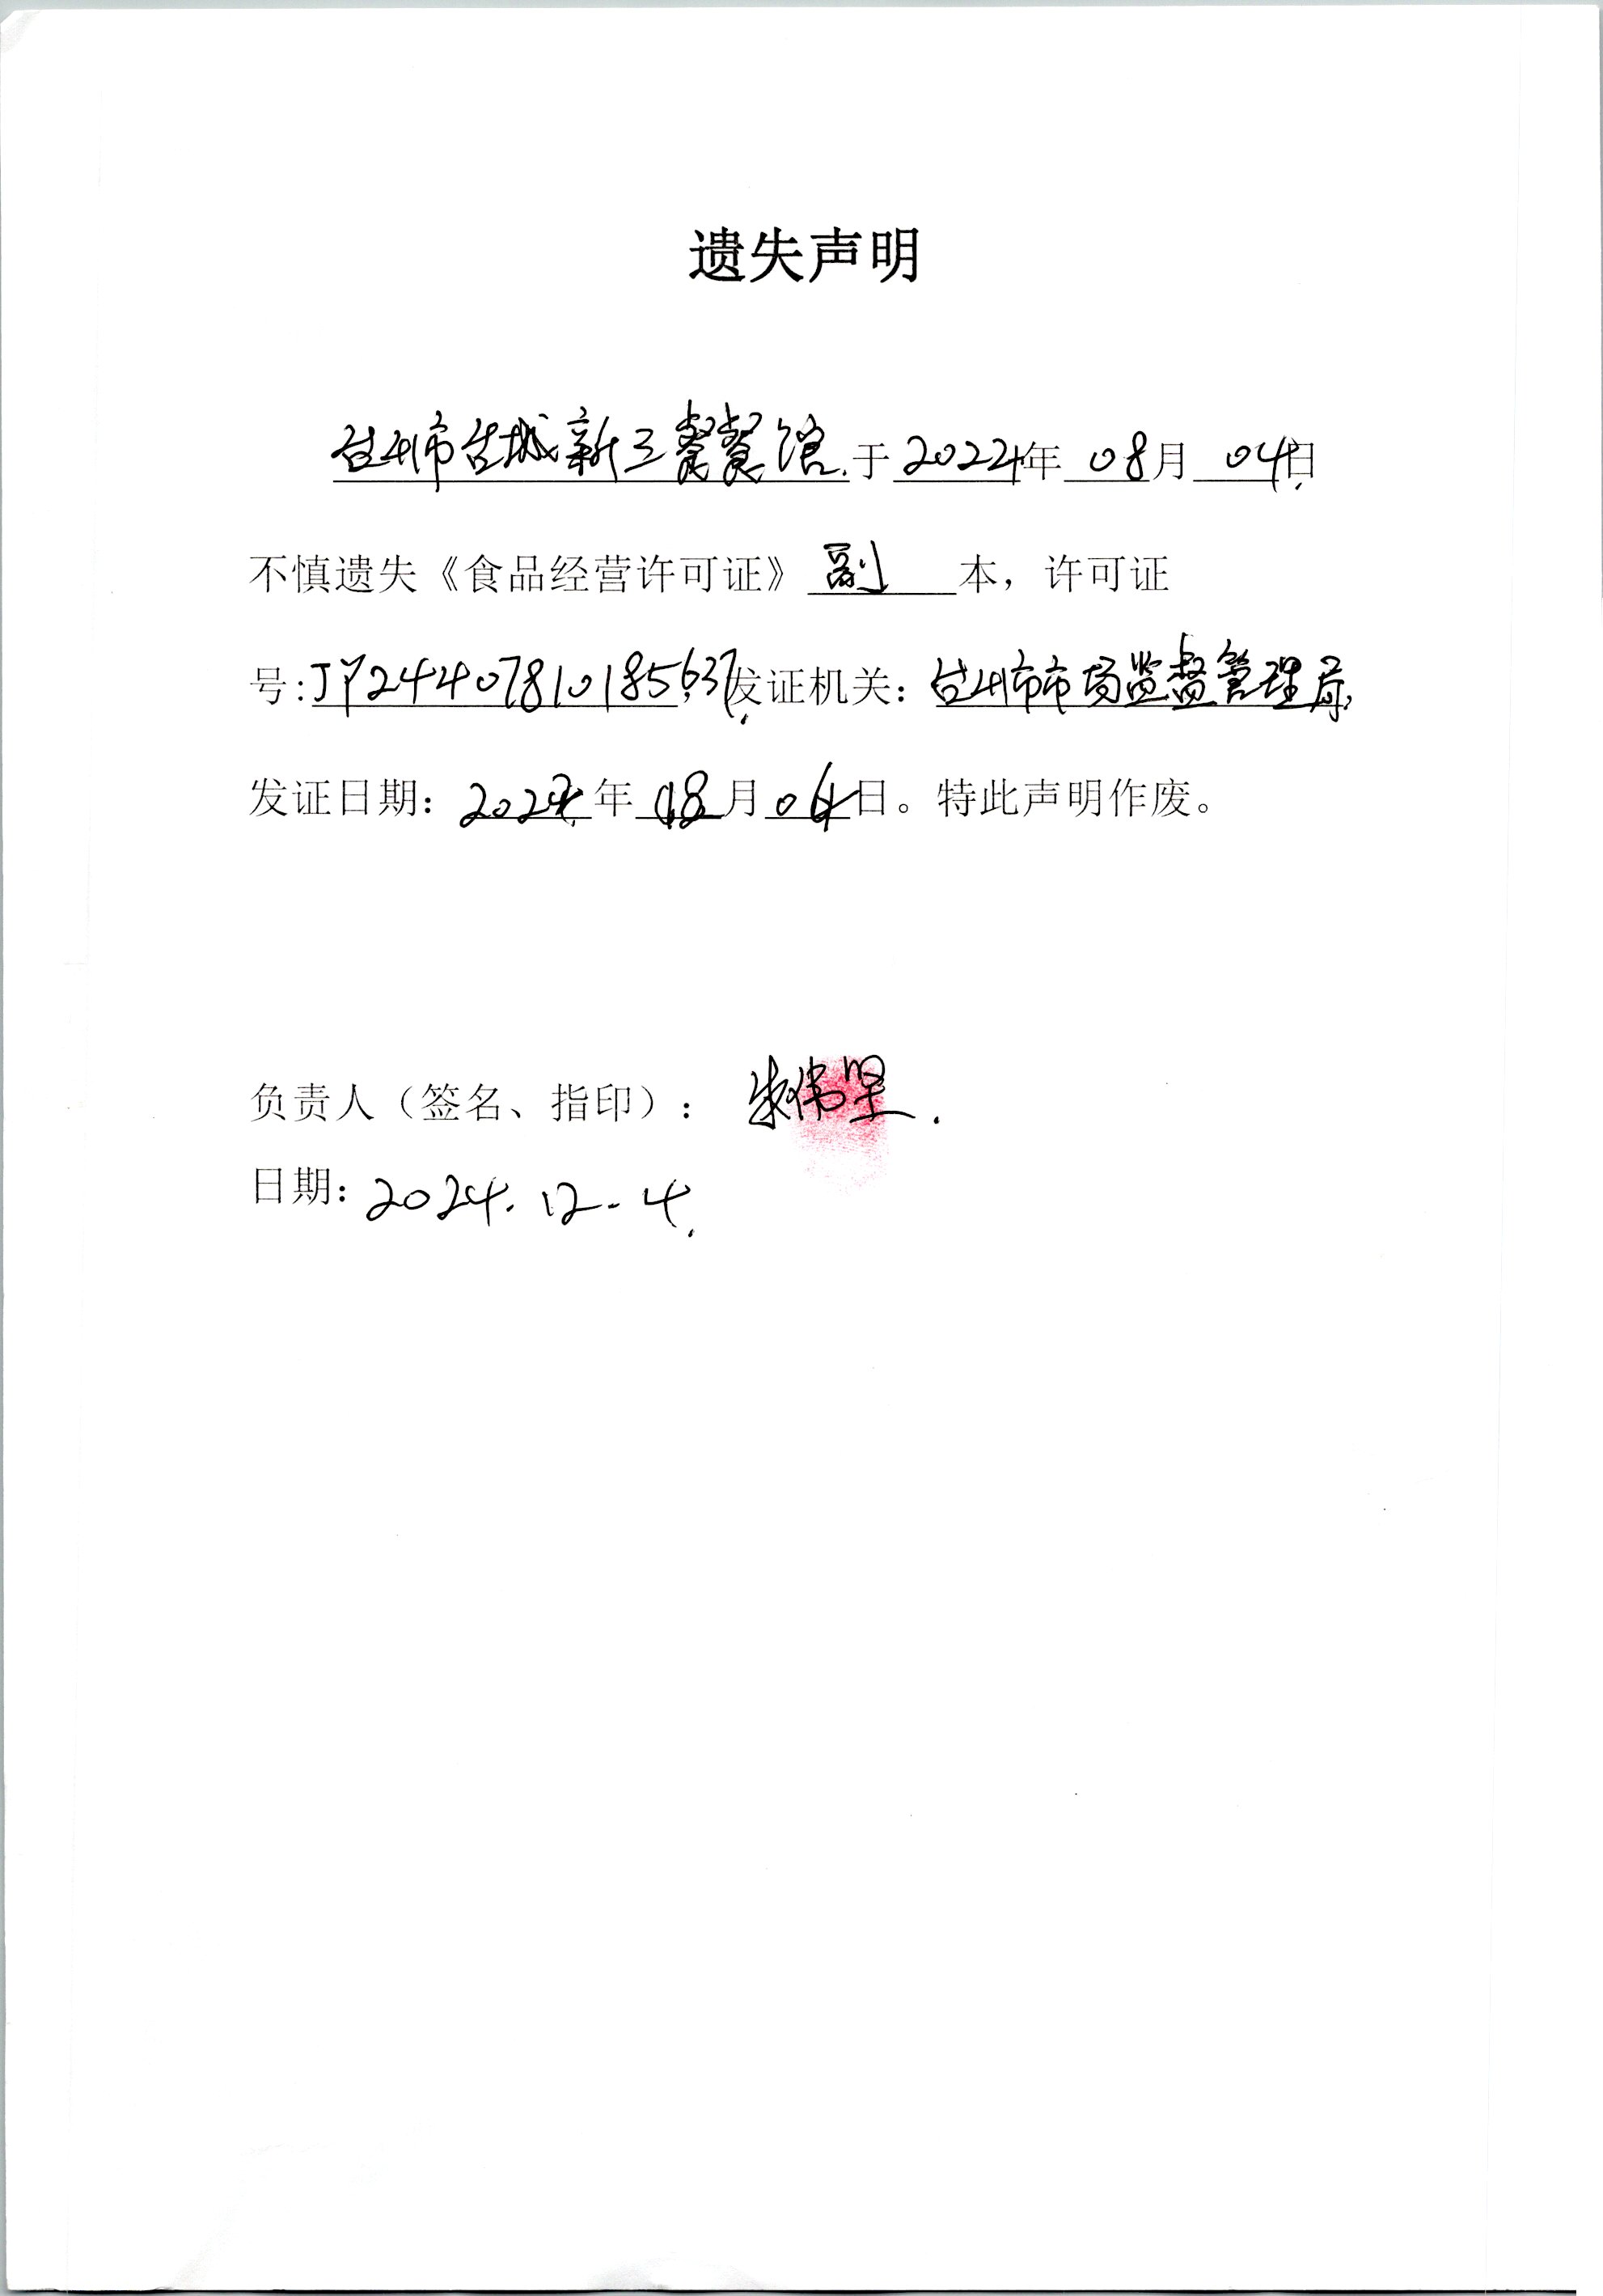 遗失声明
台山市台城新三餐餐馆.于2024年08月04日
不慎遗失《食品经营许可证》副本，许可证
号:JY24407810185637，发证机关：台山市市场监督管理局,
发证日期：2024年 月04日。特此声明作废。
负责人（签名、指印）：朱伟坚.
日期：2024.12.4.